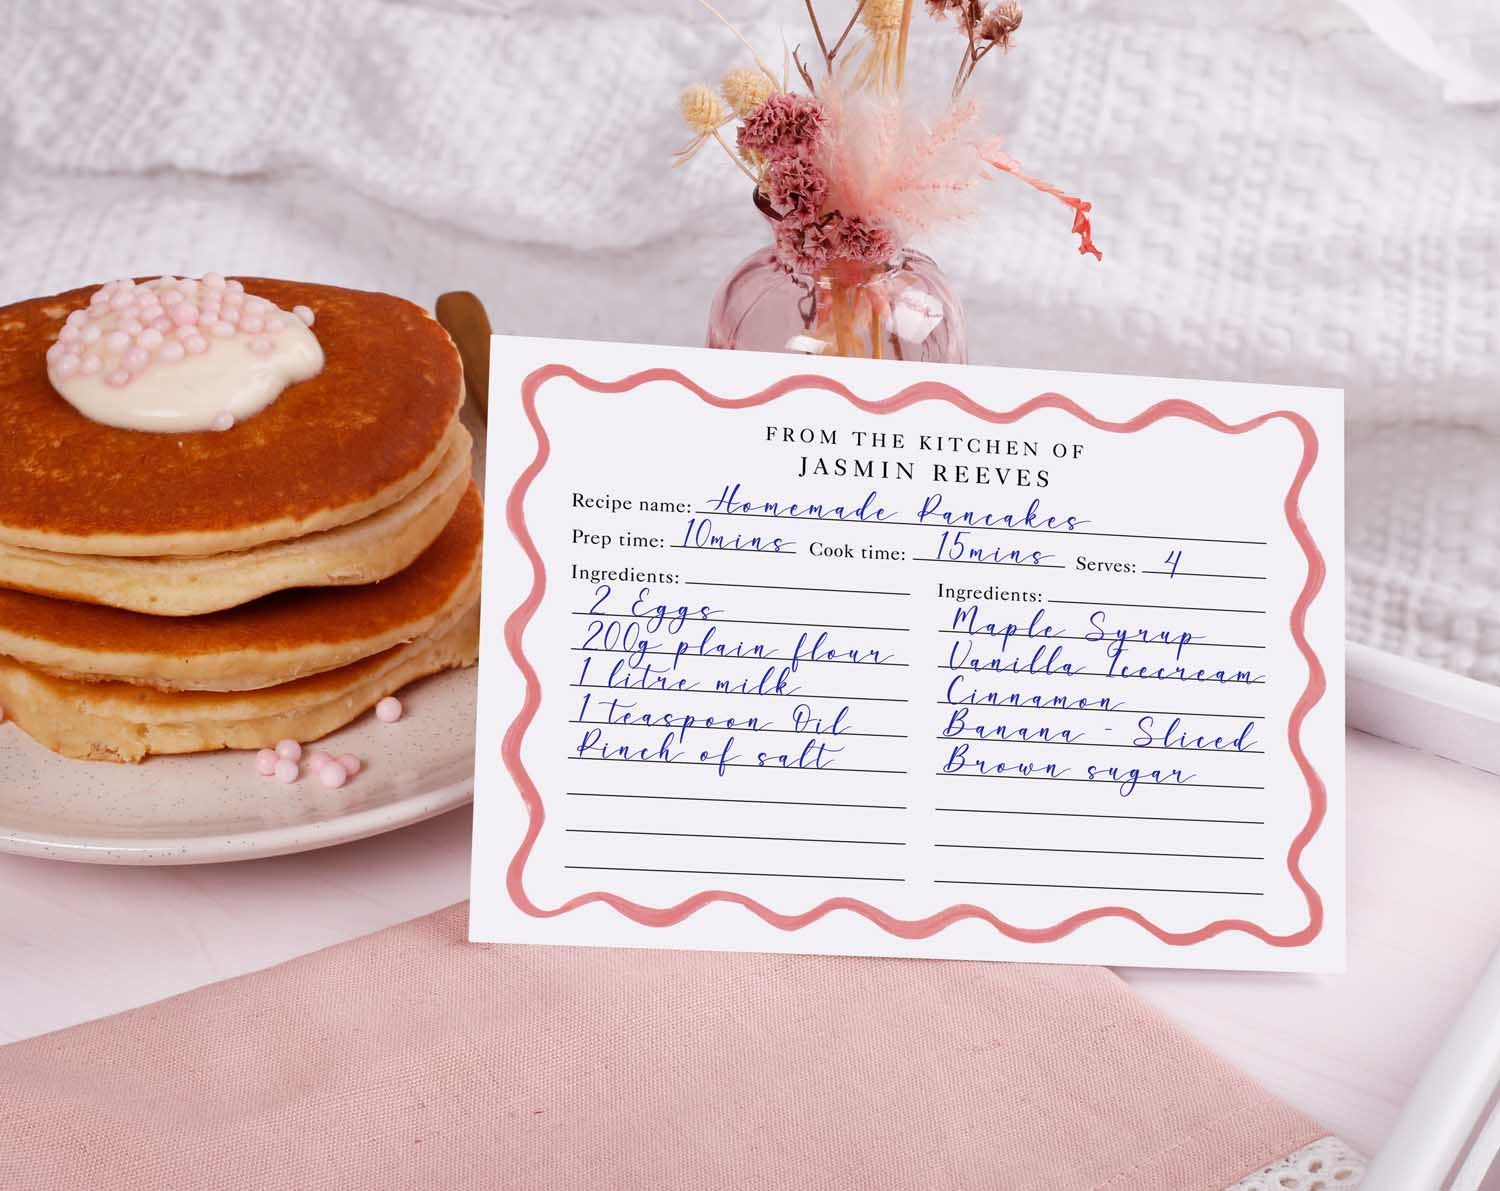 FROM THE KITCHEN OF
JASMIN REEVES
Recipe name: Homemade Pancakes
Prep time: 10mins Cook time: 15mins Serves: 4
Ingredients:
2 Eggs
200g plain flour
1 litre milk
1 teaspoon Oil
Pinch of salt
Ingredients:
Maple Syrup
Vanilla Icecream
Cinnamon
Banana - Sliced
Brown sugar